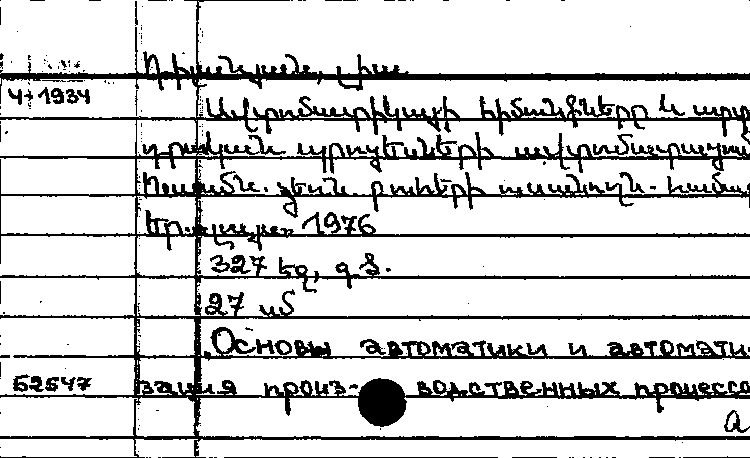 4+1934
Ավտոմատիկայի հիմունքները և արտ
դրական պրոցեսների ավտոմատացում
Ուսումն. ձեռն. բուհերի ուսանողն. համար
Եր. 1976
327 եզ, գծ.
27 սմ
Основы автоматики и автомати-
52547 зация произ- водственных процессо